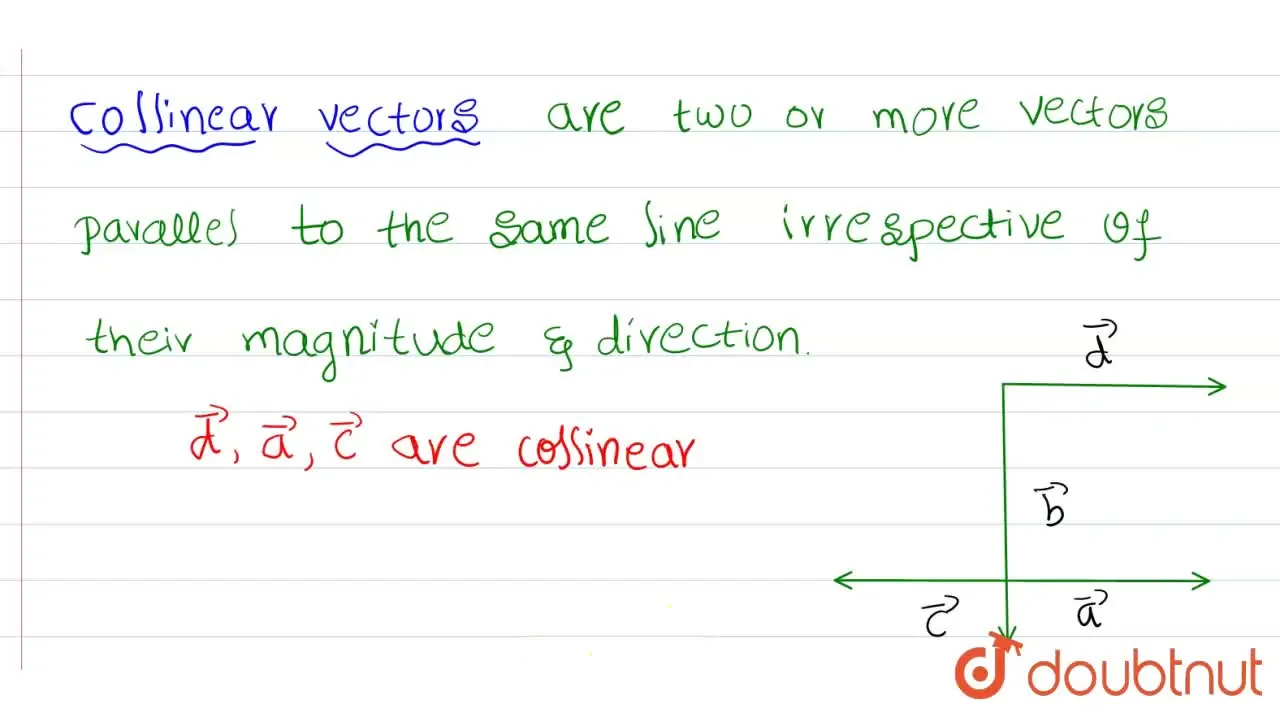 collinear vectors are two or more vectors
parallel to the same line irrespective of
their magnitude & direction.
d⃗
d⃗, a⃗, c⃗ are collinear
b⃗
c⃗ a⃗
doubtnut